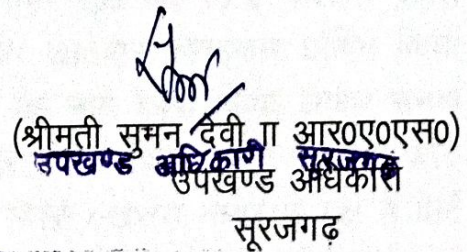 (श्रीमती सुमन देवी ।। आर0ए0एस0)
उपखण्ड अधिकारी सूरजगढ़
उपखण्ड अधिकारी
सूरजगढ़